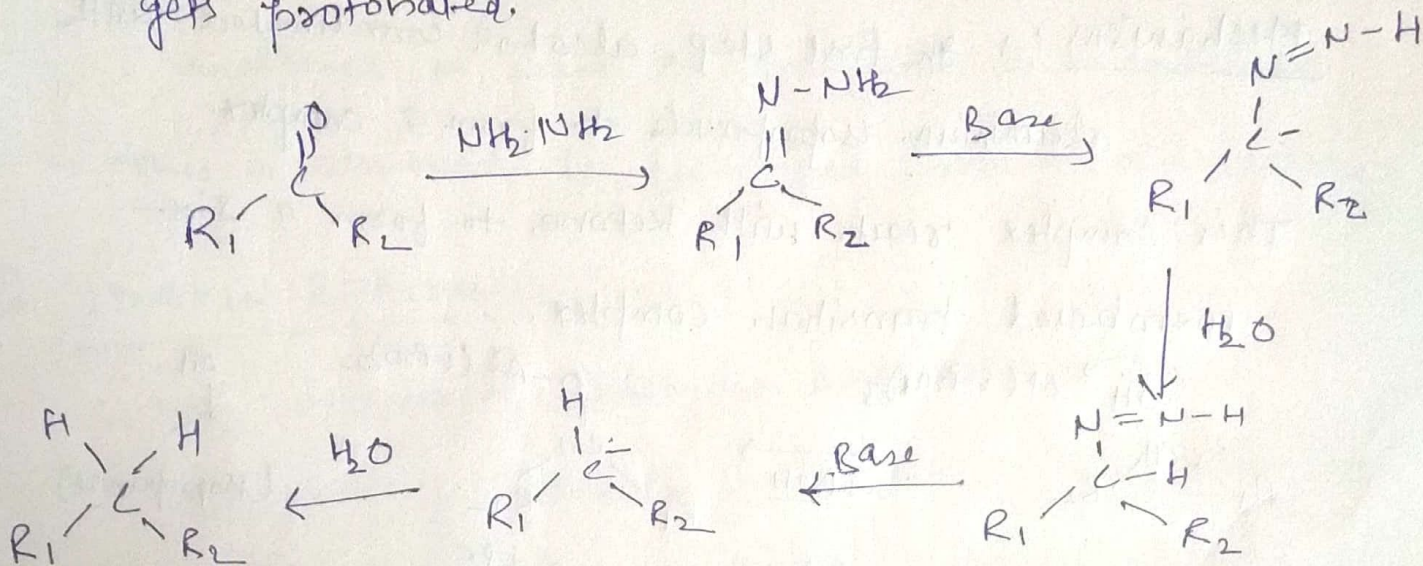 gets protonated.
O
C
R1 R2
NH2.NH2
N-NH2
C
R1 R2
Base
N=N-H
C-
R1 R2
H2O
N=N-H
C-H
R1 R2
Base
H
C-
R1 R2
H2O
H H
C
R1 R2